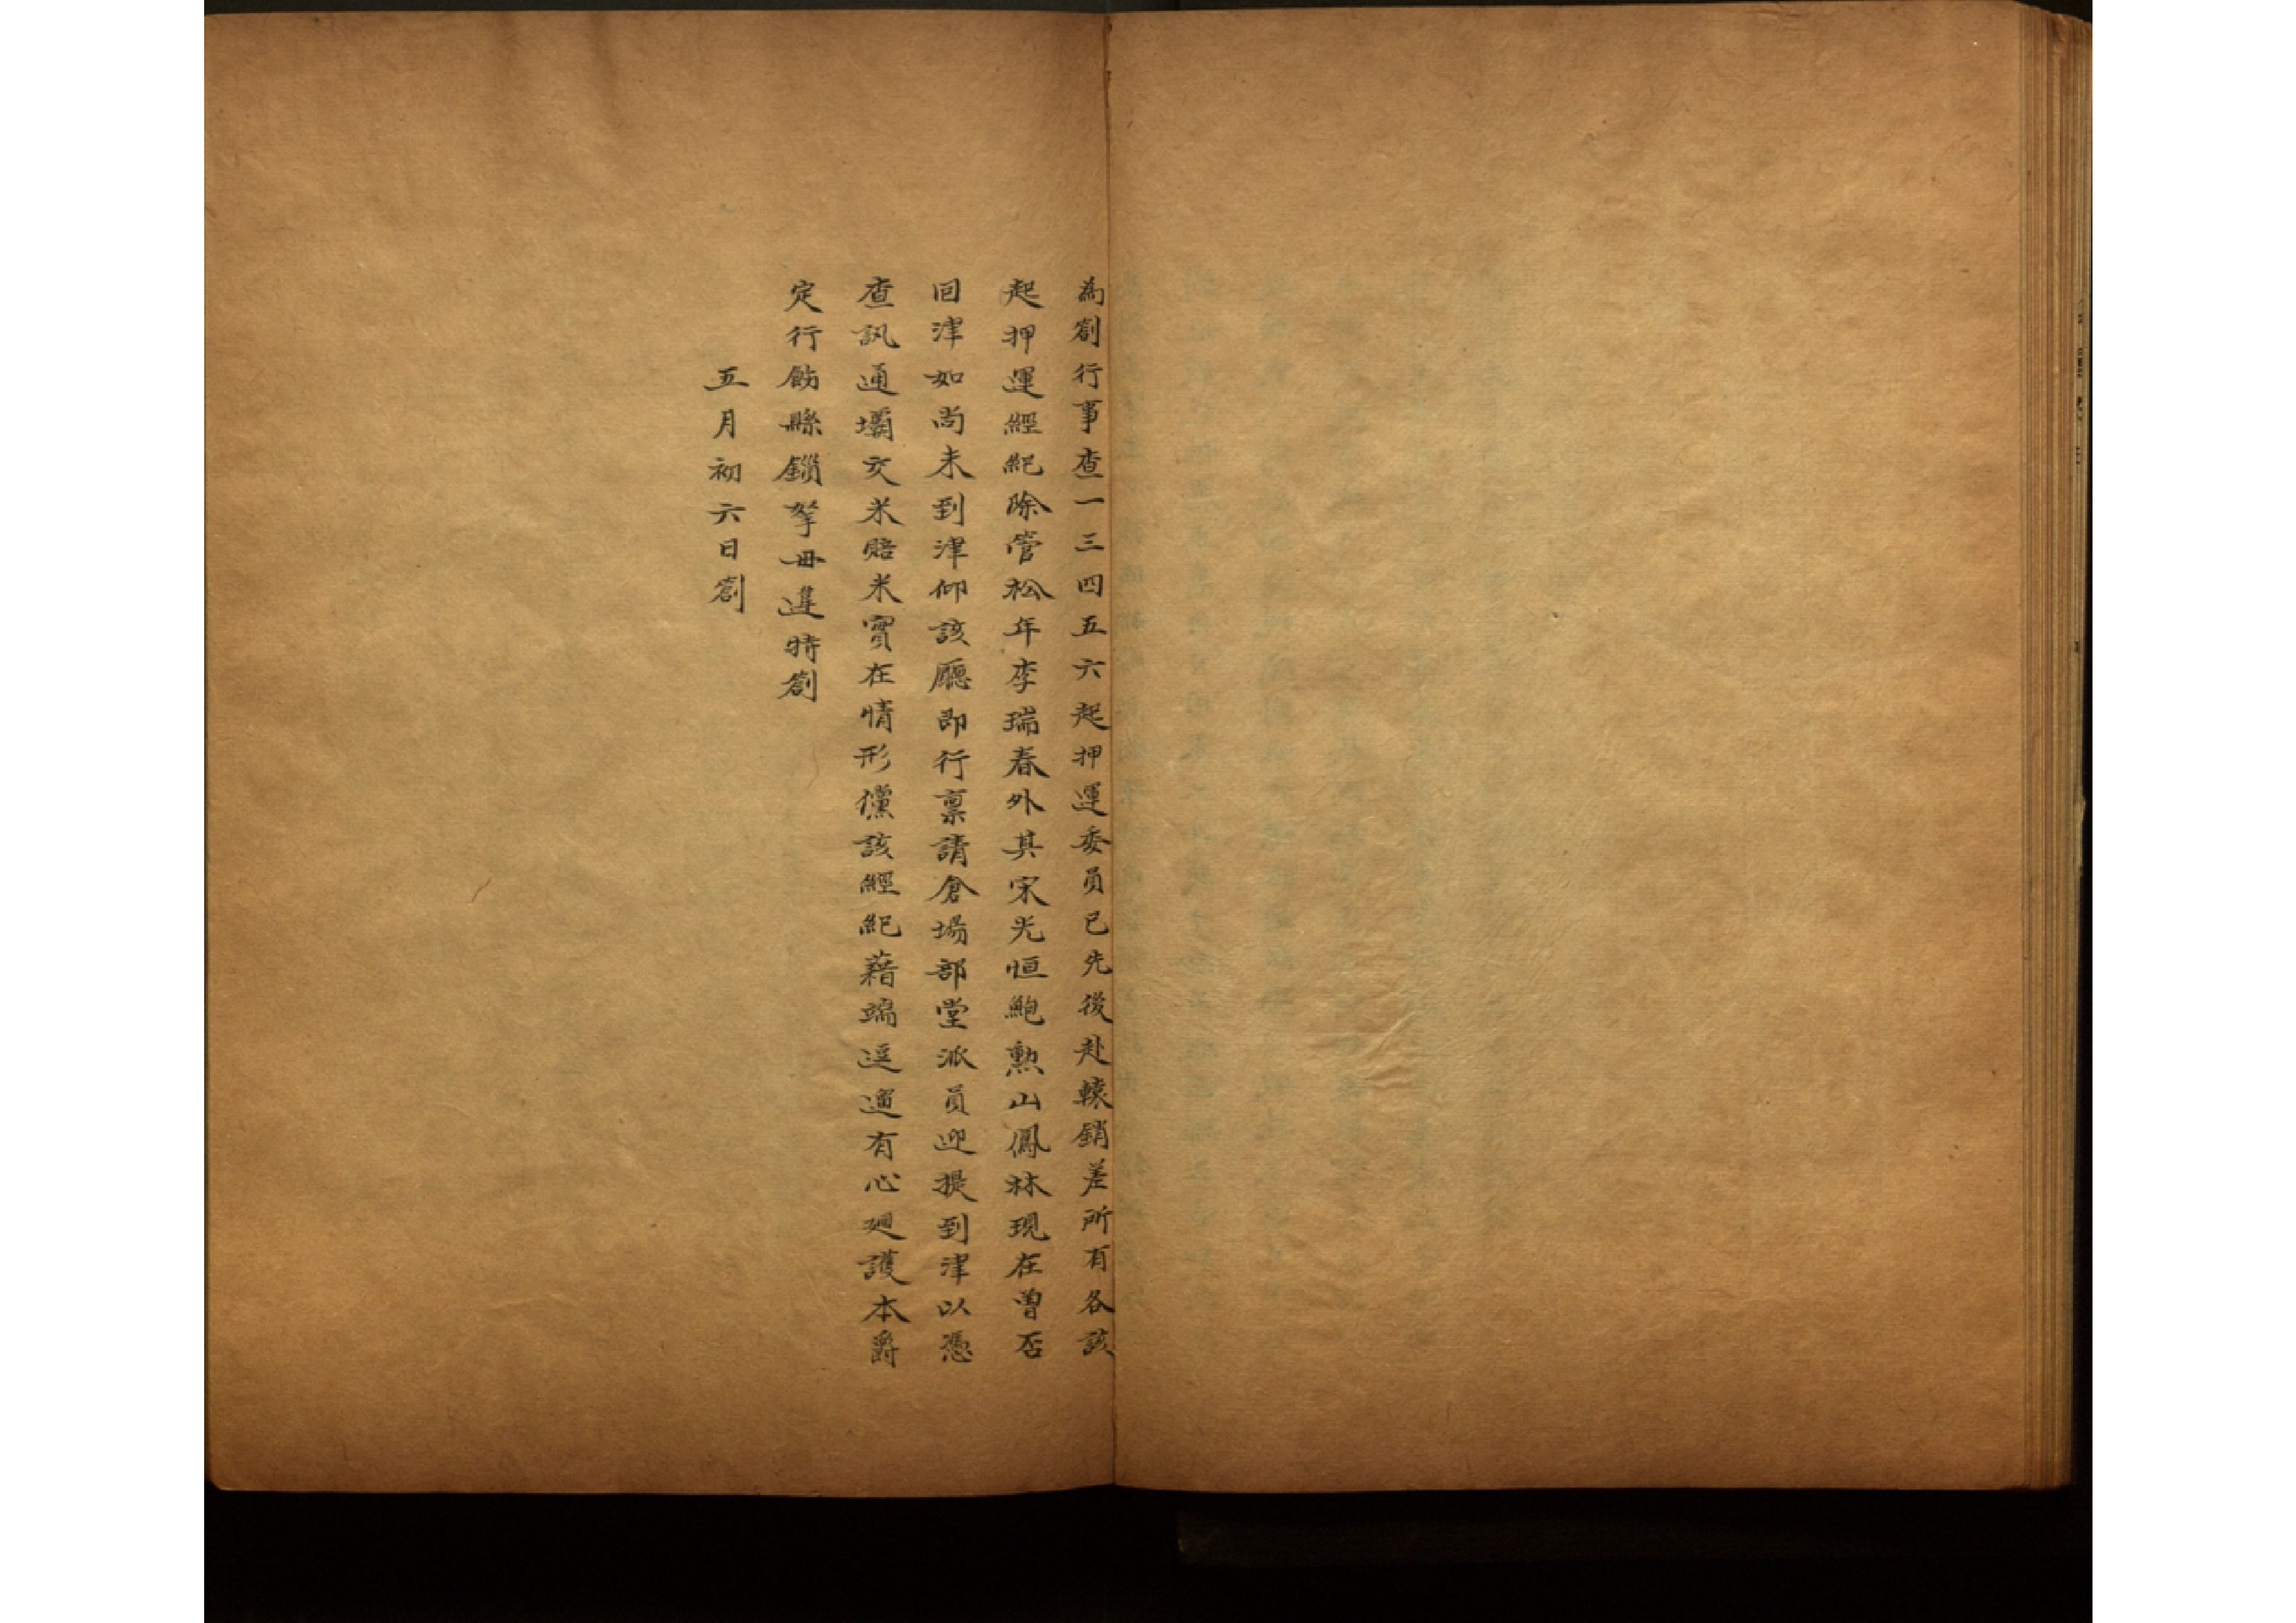 為劄行事查一三四五六起押運委員已先後赴轅銷差所有各該
起押運經紀除管松年李瑞春外其宋光恒鮑勲山鳳林現在曽否
回津如尚未到津仰該廳即行禀請倉場部堂派員迎提到津以憑
查訊通壩交米賠米實在情形儻該經紀藉端逗遛有心廻護本爵
定行飭縣鎖拏毋違特劄
五月初六日劄